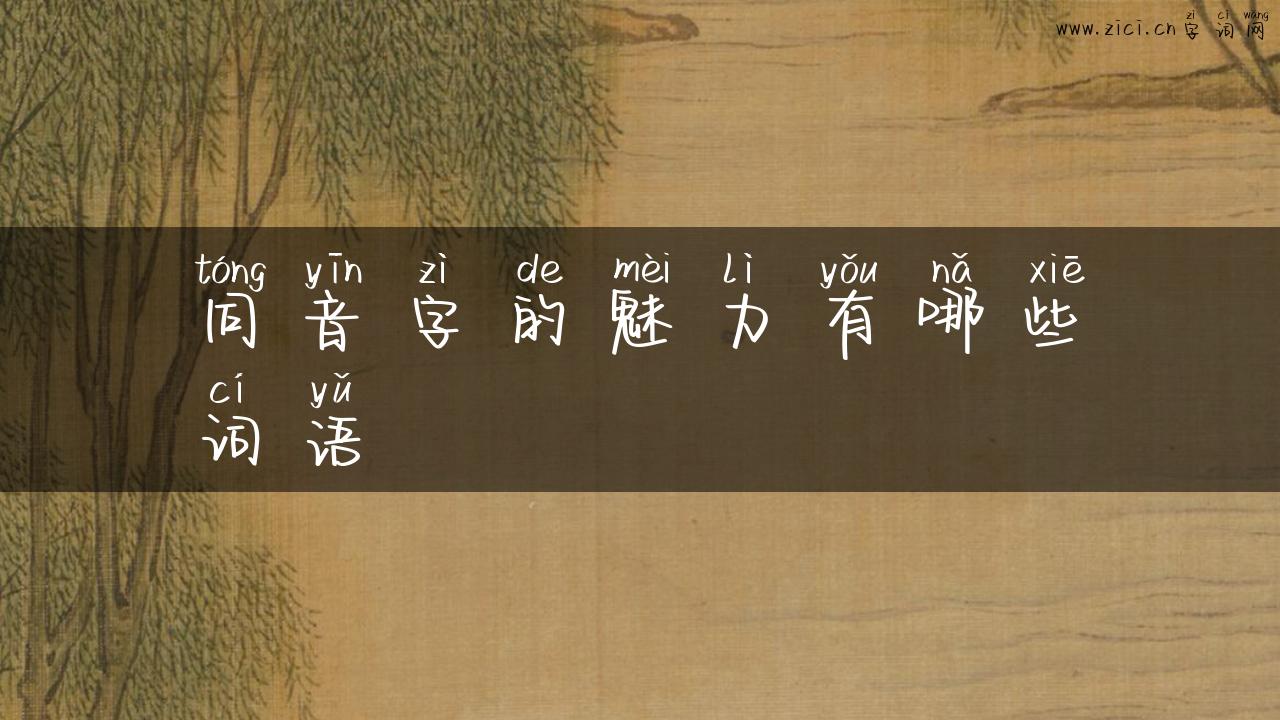 zì cí wǎng
www.zici.cn字词网
tóng yīn zì de mèi lì yǒu nǎ xiē
同音字的魅力有哪些
cí yǔ
词语